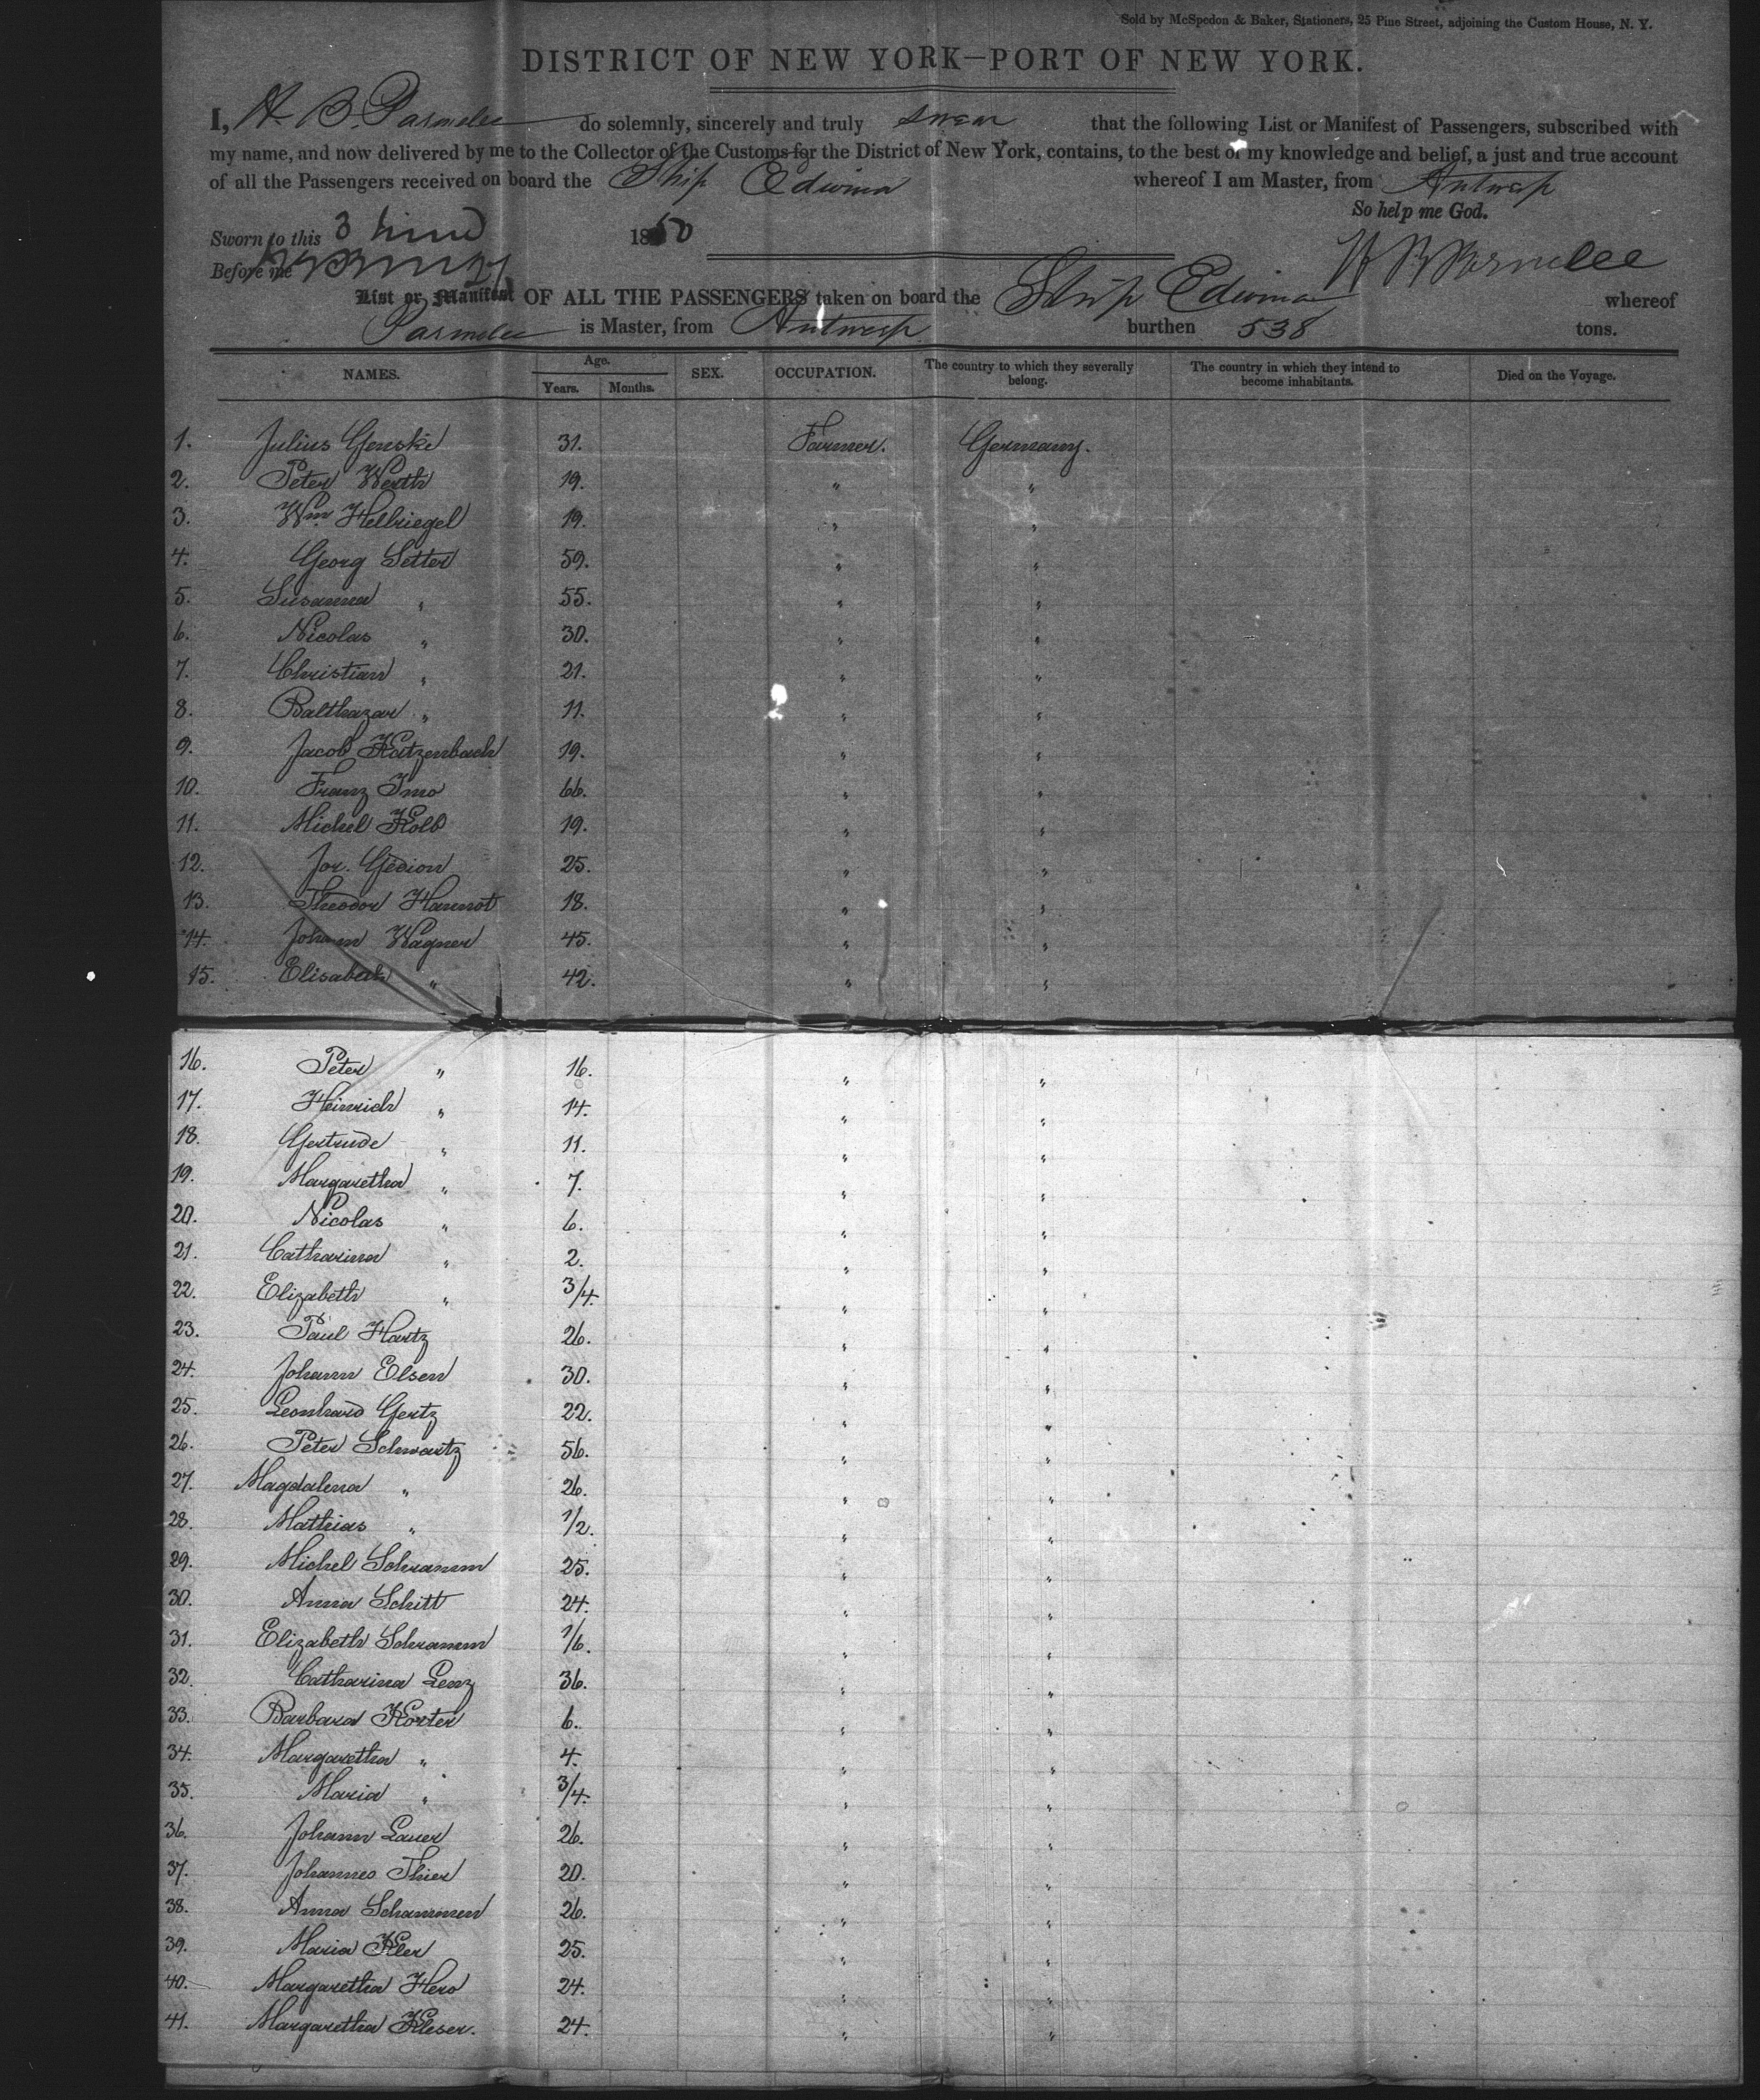 Sold by McSpedon & Baker, Stationers, 25 Pine Street, adjoining the Custom House, N. Y.
DISTRICT OF NEW YORK—PORT OF NEW YORK.
I, H. B. Parmelee do solemnly, sincerely and truly swear that the following List or Manifest of Passengers, subscribed with
my name, and now delivered by me to the Collector of the Customs for the District of New York, contains, to the best of my knowledge and belief, a just and true account
of all the Passengers received on board the Ship Edwina whereof I am Master, from Antwerp
So help me God.
Sworn to this 3 June 1850
Before me
H B Parmelee
List or Manifest OF ALL THE PASSENGERS taken on board the Ship Edwina whereof
Parmelee is Master, from Antwerp burthen 538 tons.
NAMES. Age. Years. Months. SEX. OCCUPATION. The country to which they severally belong. The country in which they intend to become inhabitants. Died on the Voyage.
1. Julius Genske 31. Farmer. Germany.
2. Peter Werth 19. " "
3. Wm Helriegel 19. " "
4. Georg Setter 59. " "
5. Susanna " 55. " "
6. Nicolas " 30. " "
7. Christian " 21. " "
8. Balthazar " 11. " "
9. Jacob Katzenbach 19. " "
10. Franz Imo 66. " "
11. Michel Kolb 19. " "
12. Jor. Gedion 25. " "
13. Theodor Hannot 18. " "
14. Johann Wagner 45. " "
15. Elisabeth " 42. " "
16. Peter " 16. " "
17. Heinrich " 14. " "
18. Gertrude " 11. " "
19. Margaretha " 7. " "
20. Nicolas " 6. " "
21. Catharina " 2. " "
22. Elizabeth " 3/4. " "
23. Paul Hartz 26. " "
24. Johann Elsen 30. " "
25. Leonhard Gertz 22. " "
26. Peter Schwartz 56. " "
27. Magdalena " 26. " "
28. Mathias " 1/2. " "
29. Michel Schramm 25. " "
30. Anna Schitt 24. " "
31. Elizabeth Schramm 1/6. " "
32. Catharina Lenz 36. " "
33. Barbara Korter 6. " "
34. Margaretha " 4. " "
35. Maria " 3/4. " "
36. Johann Lauer 26. " "
37. Johannes Thier 20. " "
38. Anna Schammen 26. " "
39. Maria Kler 25. " "
40. Margaretha Hero 24. " "
41. Margaretha Kleser. 24. " "